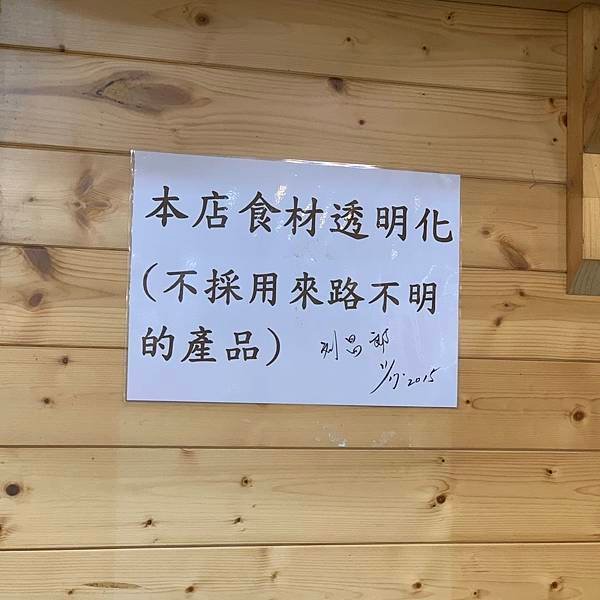 本店食材透明化
(不採用來路不明
的產品)
11/17.2015